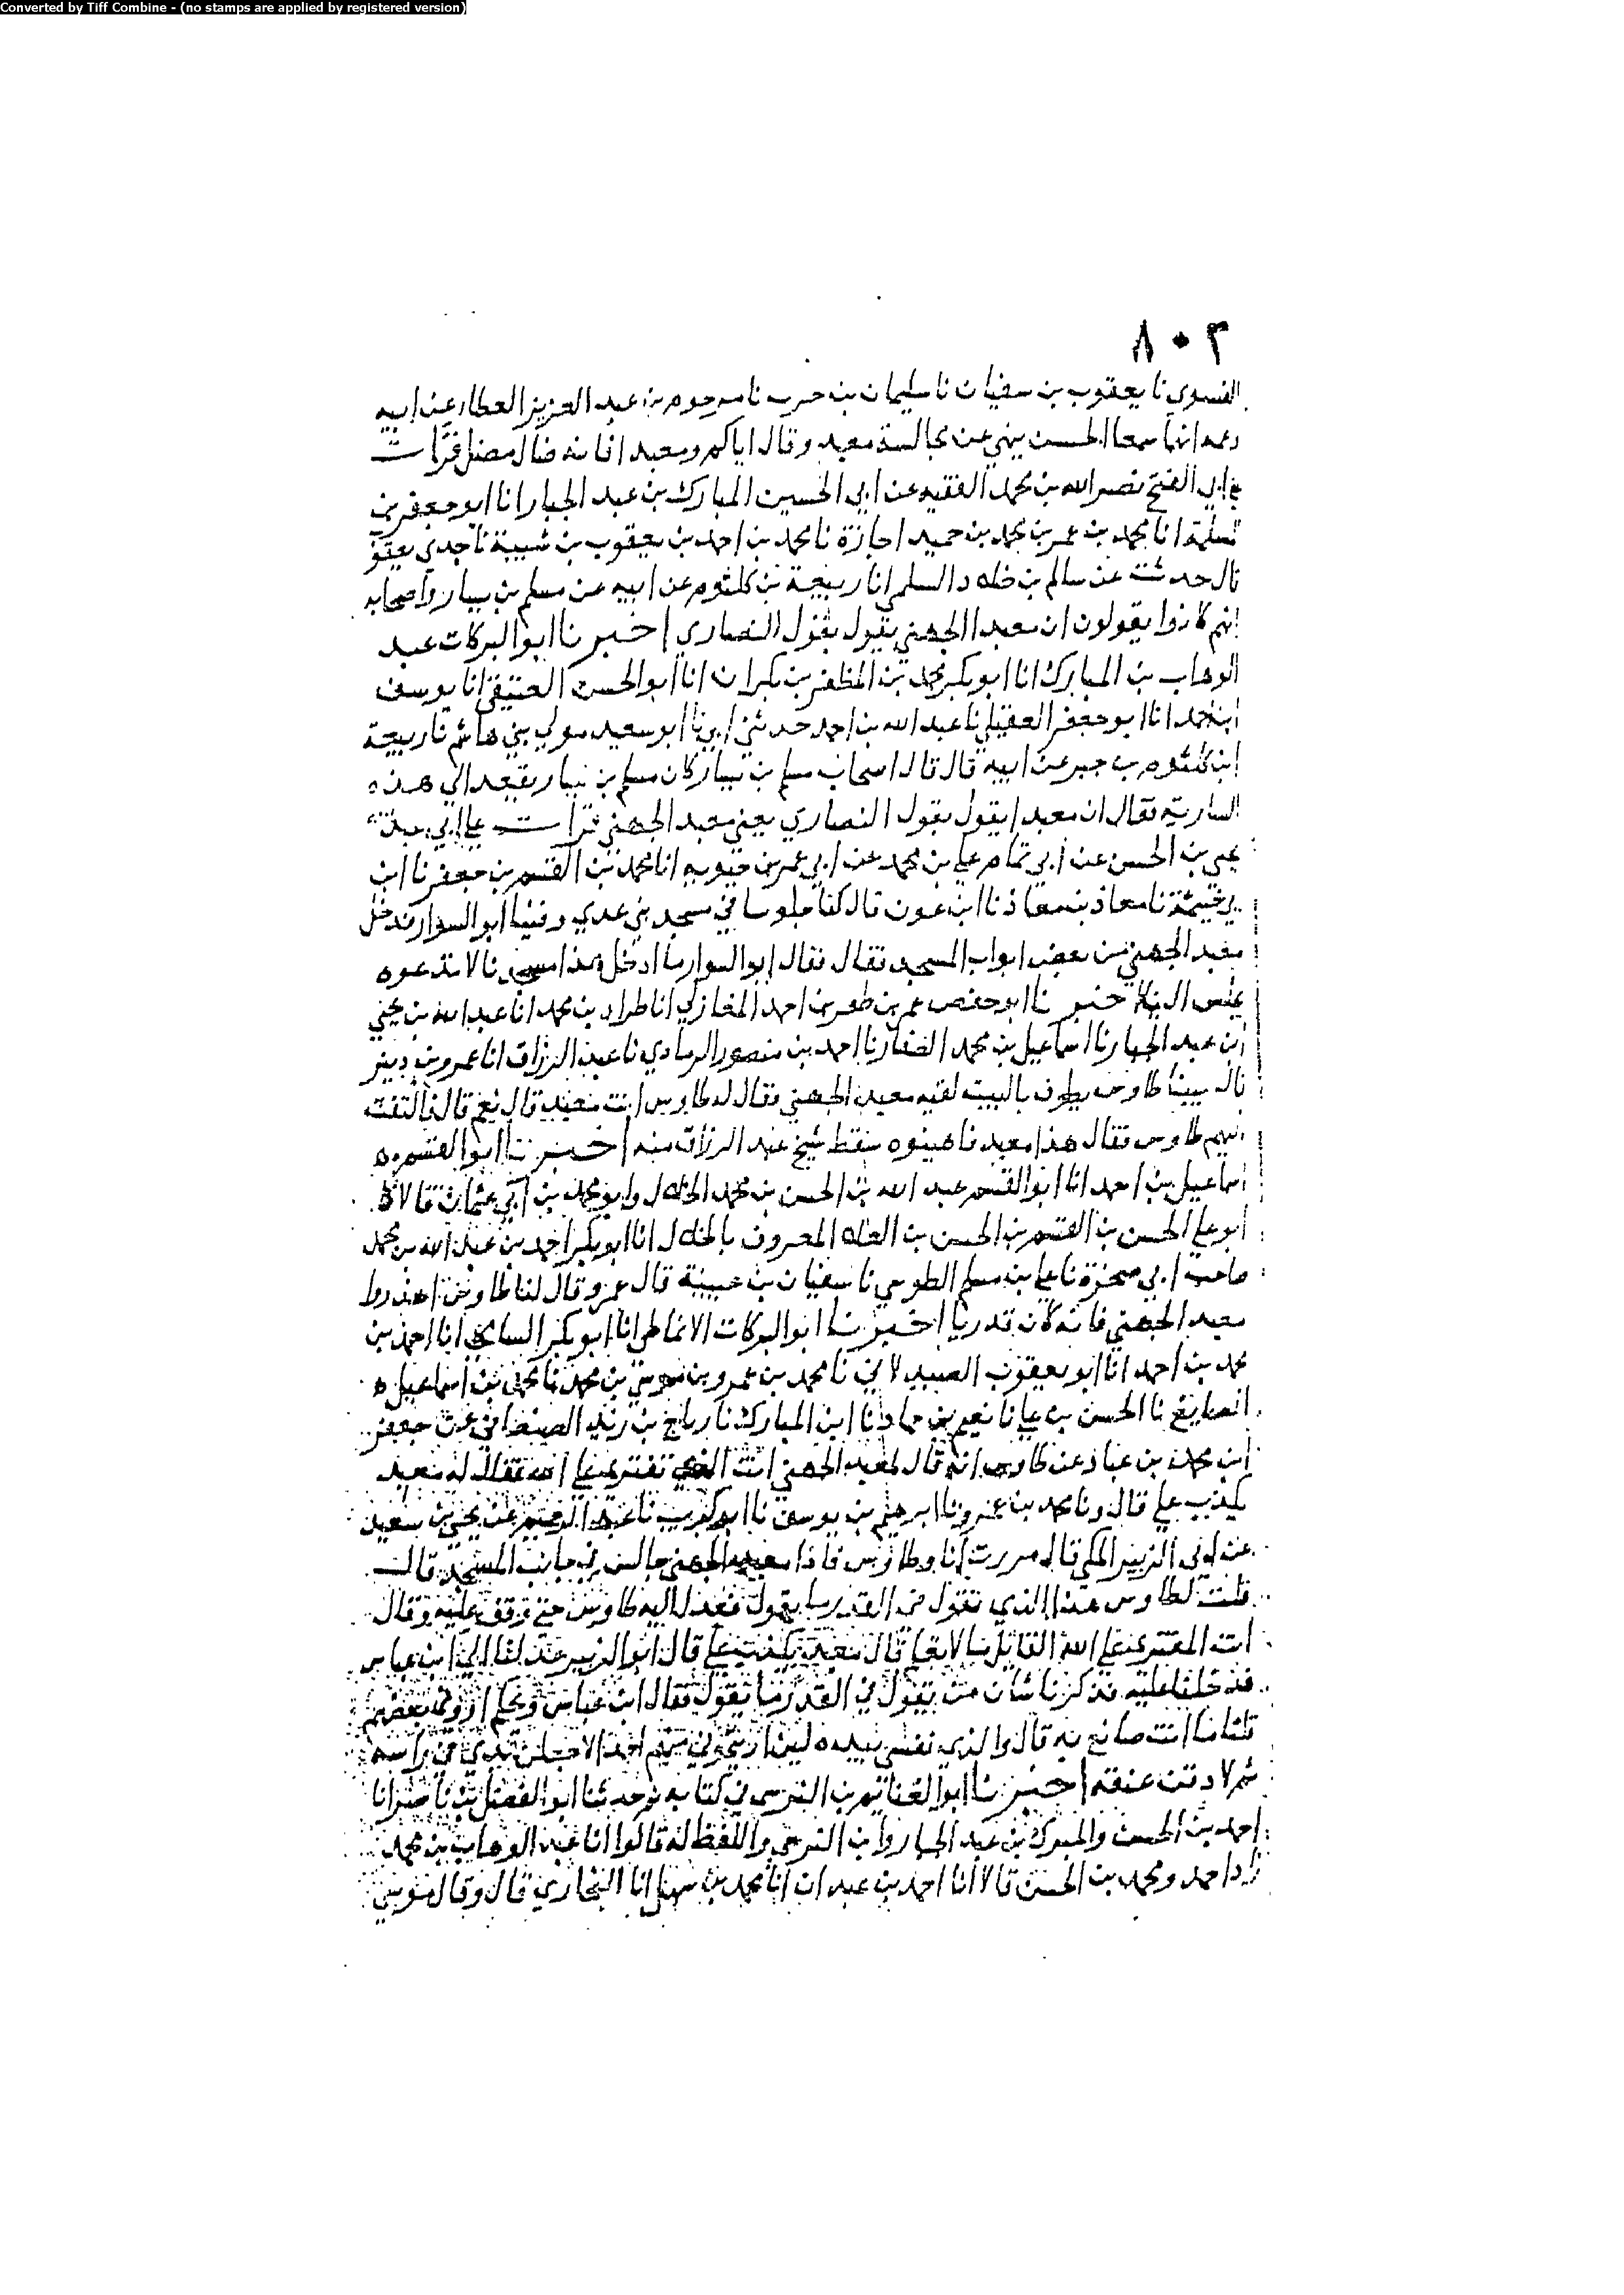 Converted by Tiff Combine - (no stamps are applied by registered version)
٨٠٣
الفسوي نا يعقوب بن سفيان نا سليمان بن حرب نا مرحوم بن عبد العزيز العطار عن ابيه
وعمه انهما سمعا الحسن ينهي عن مجالسة معبد وقال اياكم ومعبد افانه ضال مضل قرات
علي ابي الفتح نصر الله بن محمد الفقيه عن ابي الحسين المبارك بن عبد الجبار انا ابو جعفر بن
مسلمة انا محمد بن عمر بن محمد بن حميد اجازة نا محمد بن احمد بن يعقوب بن شيبة نا جدي يعقو
قال حدثت عن سالم بن السلمي انا ربيعة بن كلثوم عن ابيه عن مسلم بن يسار واصحابه
انهم كانوا يقولون ان معبدا الجهني يقول بقول النصاري اخبرنا ابو البركات عبد
الوهاب بن المبارك انا ابو بكر محمد بن المظفر بن بكران انا ابو الحسن العتيقي انا يوسف
ابن احمد انا ابو جعفر العقيلي نا عبد الله بن احمد حدثني ابي نا ابو سعيد مولي بني هاشم نا ربيعة
ابن كلثوم بن جبر عن ابيه قال قال اصحاب مسلم بن يسار كان مسلم بن يسار يقعد الي هذه
السارية فقال ان معبدا يقول بقول النصاري يعني معبد الجهني قرات علي ابي
يحيي بن الحسن عن ابي تمام علي بن محمد عن ابي عمر بن حيويه انا محمد بن القسم بن جعفر نا ابن
ابي خيثمة نا معاذ بن معاذ نا ابن عون قال كنا جلوسا في مسجد بني عدي وفينا ابو السوار فدخل
معبد الجهني من بعض ابواب المسجد فقال فقال ابو السوار ما ادخل هذا مسجدنا لا تدعوه
يجلس الينا اخبرنا ابو حفص عمر بن ظفر بن احمد المغازلي انا طراد بن محمد انا عبد الله بن يحيي
ابن عبد الجبار نا اسماعيل بن محمد الصفار نا احمد بن منصور الرمادي نا عبد الرزاق انا عمرو بن دينر
قال بينا طاوس يطوف بالبيت لقيه معبد الجهني فقال له طاوس انت معبد قال نعم قال فالتفت
اليهم طاوس فقال هذا معبد فاهينوه سقط شيخ عبد الرزاق منه اخبرنا ابو القسم
اسماعيل بن احمد انا ابو القسم عبد الله بن الحسن بن محمد الخلال وابو محمد بن ابي عثمان قالا انا
ابو علي الحسن بن القسم بن الحسن بن العلاء المعروف بالخلال انا ابو بكر احمد بن عبد الله بن محمد
صاحب ابي صخرة نا علي بن مسلم الطوسي نا سفيان بن عيينة قال عمرو قال لنا طاوس احذروا
معبد الجهني فانه كان قدريا اخبرنا ابو البركات الانماطي انا ابو بكر الشامي انا احمد بن
محمد بن احمد انا ابو يعقوب الصيدلاني نا محمد بن عمرو بن موسي بن محمد نا محمد بن اسماعيل
الصايغ نا الحسن بن علي نا نعيم بن حماد نا ابن المبارك نا رباح بن زيد الصنعاني عن جعفر
ابن محمد بن عباد عن طاوس انه قال لمعبد الجهني انت الذي تفتري علي الله فقال له معبد
يكذب علي قال ونا محمد بن عمرو نا ابرهيم بن يوسف نا ابو كريب نا عن يحيي بن سعيد
عن ابي الزبير المكي قال مررت انا وطاوس فاذا معبد الجهني جالس في جانب المسجد قال
قلت لطاوس هذا الذي تقول في القدر ما يقول فعدل اليه طاوس حتي وقف عليه وقال
انت المفتري علي الله القايل ما لا تعلم قال معبد يكذب علي قال ابو الزبير فعدلنا الي ابن عباس
فدخلنا عليه فذكرنا شان من يقول في القدر ما يقول فقال ابن عباس ويحكم اروني بعضهم
قلنا ما انت صانع به قال والذي نفسي بيده لين اريتموني منهم احدا لاجعلن يدي في راسه
ثم لا دقن عنقه اخبرنا ابو الغنايم بن النرسي في كتابه ثم حدثنا ابو الفضل بن ناصر انا
احمد بن الحسن والمبرك بن عبد الجبار وابن النرسي واللفظ له قالوا انا عبد الوهاب بن محمد
زاد احمد ومحمد بن الحسن قالا انا احمد بن عبدان انا محمد بن سهل انا البخاري قال وقال موسي